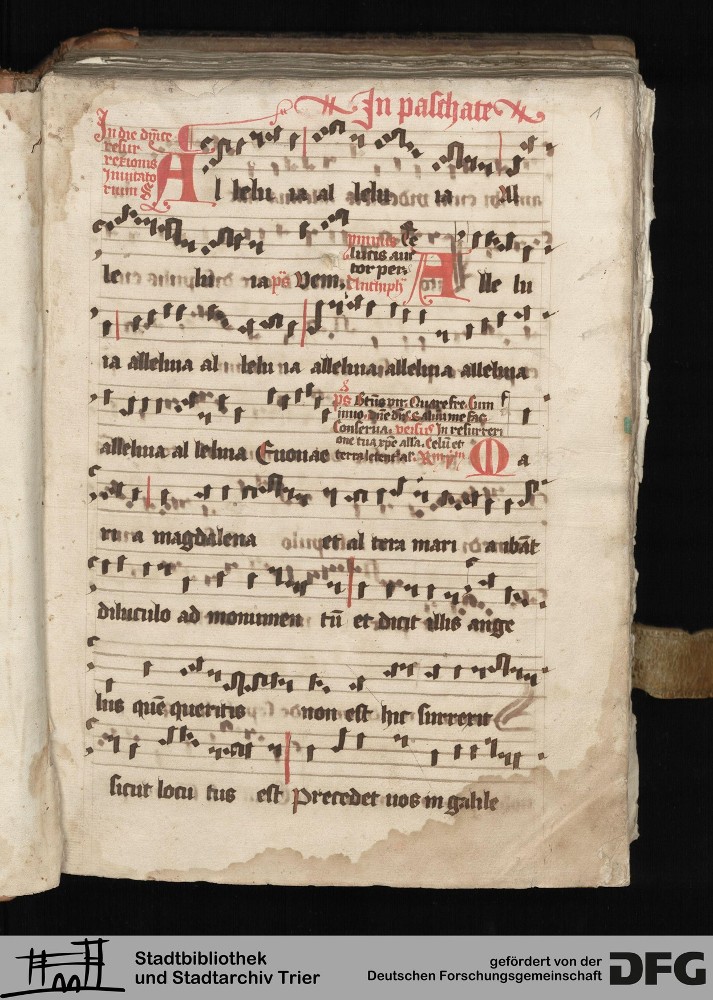 In paschate
1
In die dn̄ice
resur
rectionis
Inuitato
rium
Al lelu ia al lelu ia Al
le lu ia ps Venit
ymnus
lucis auc
tor per
Antiph
A lle lu
ia alleluia al lelu ia alleluia alleluia alleluia
alleluia al leluia Euouae
ps Btūs vir. Quare fre. Cum
Conserua. versus In resurrecti
one tua xpe alla. Celū et
terra letent'al'.
M a
ria magdalena et al tera mari a ibāt
diluculo ad monumen tū et dicit illis ange
lus quē queritis non est hic surrexit
sicut locu tus est Precedet uos in galile
Stadtbibliothek
und Stadtarchiv Trier
gefördert von der
Deutschen Forschungsgemeinschaft
DFG